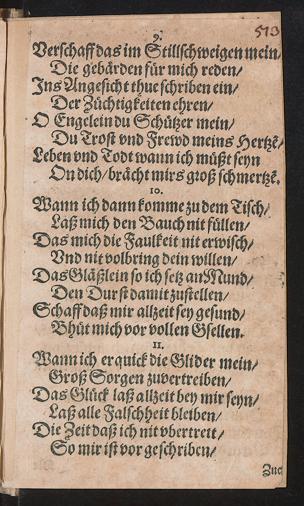 513
9.
Verschaff das im Stillschweigen mein/
Die gebärden für mich reden/
Ins Angesicht thue schriben ein/
Der Züchtigkeiten ehren/
O Engelein du Schützer mein/
Du Trost vnd Frewd meins Hertzē/
Leben vnd Todt wann ich müßt seyn
On dich/ brächt mirs groß schmertzē.
10.
Wann ich dann komme zu dem Tisch/
Laß mich den Bauch nit füllen/
Das mich die Faulkeit nit erwisch/
Vnd nit volbring dein willen/
Das Gläßlein so ich setz an Mund/
Den Durst damit zustellen/
Schaff daß mir allzeit sey gesund/
Bhüt mich vor vollen Gsellen.
11.
Wann ich erquick die Glider mein/
Groß Sorgen zuvertreiben/
Das Glück laß allzeit bey mir seyn/
Laß alle Falschheit bleiben/
Die Zeit daß ich nit vbertreit/
So mir ist vor geschriben/
Zue